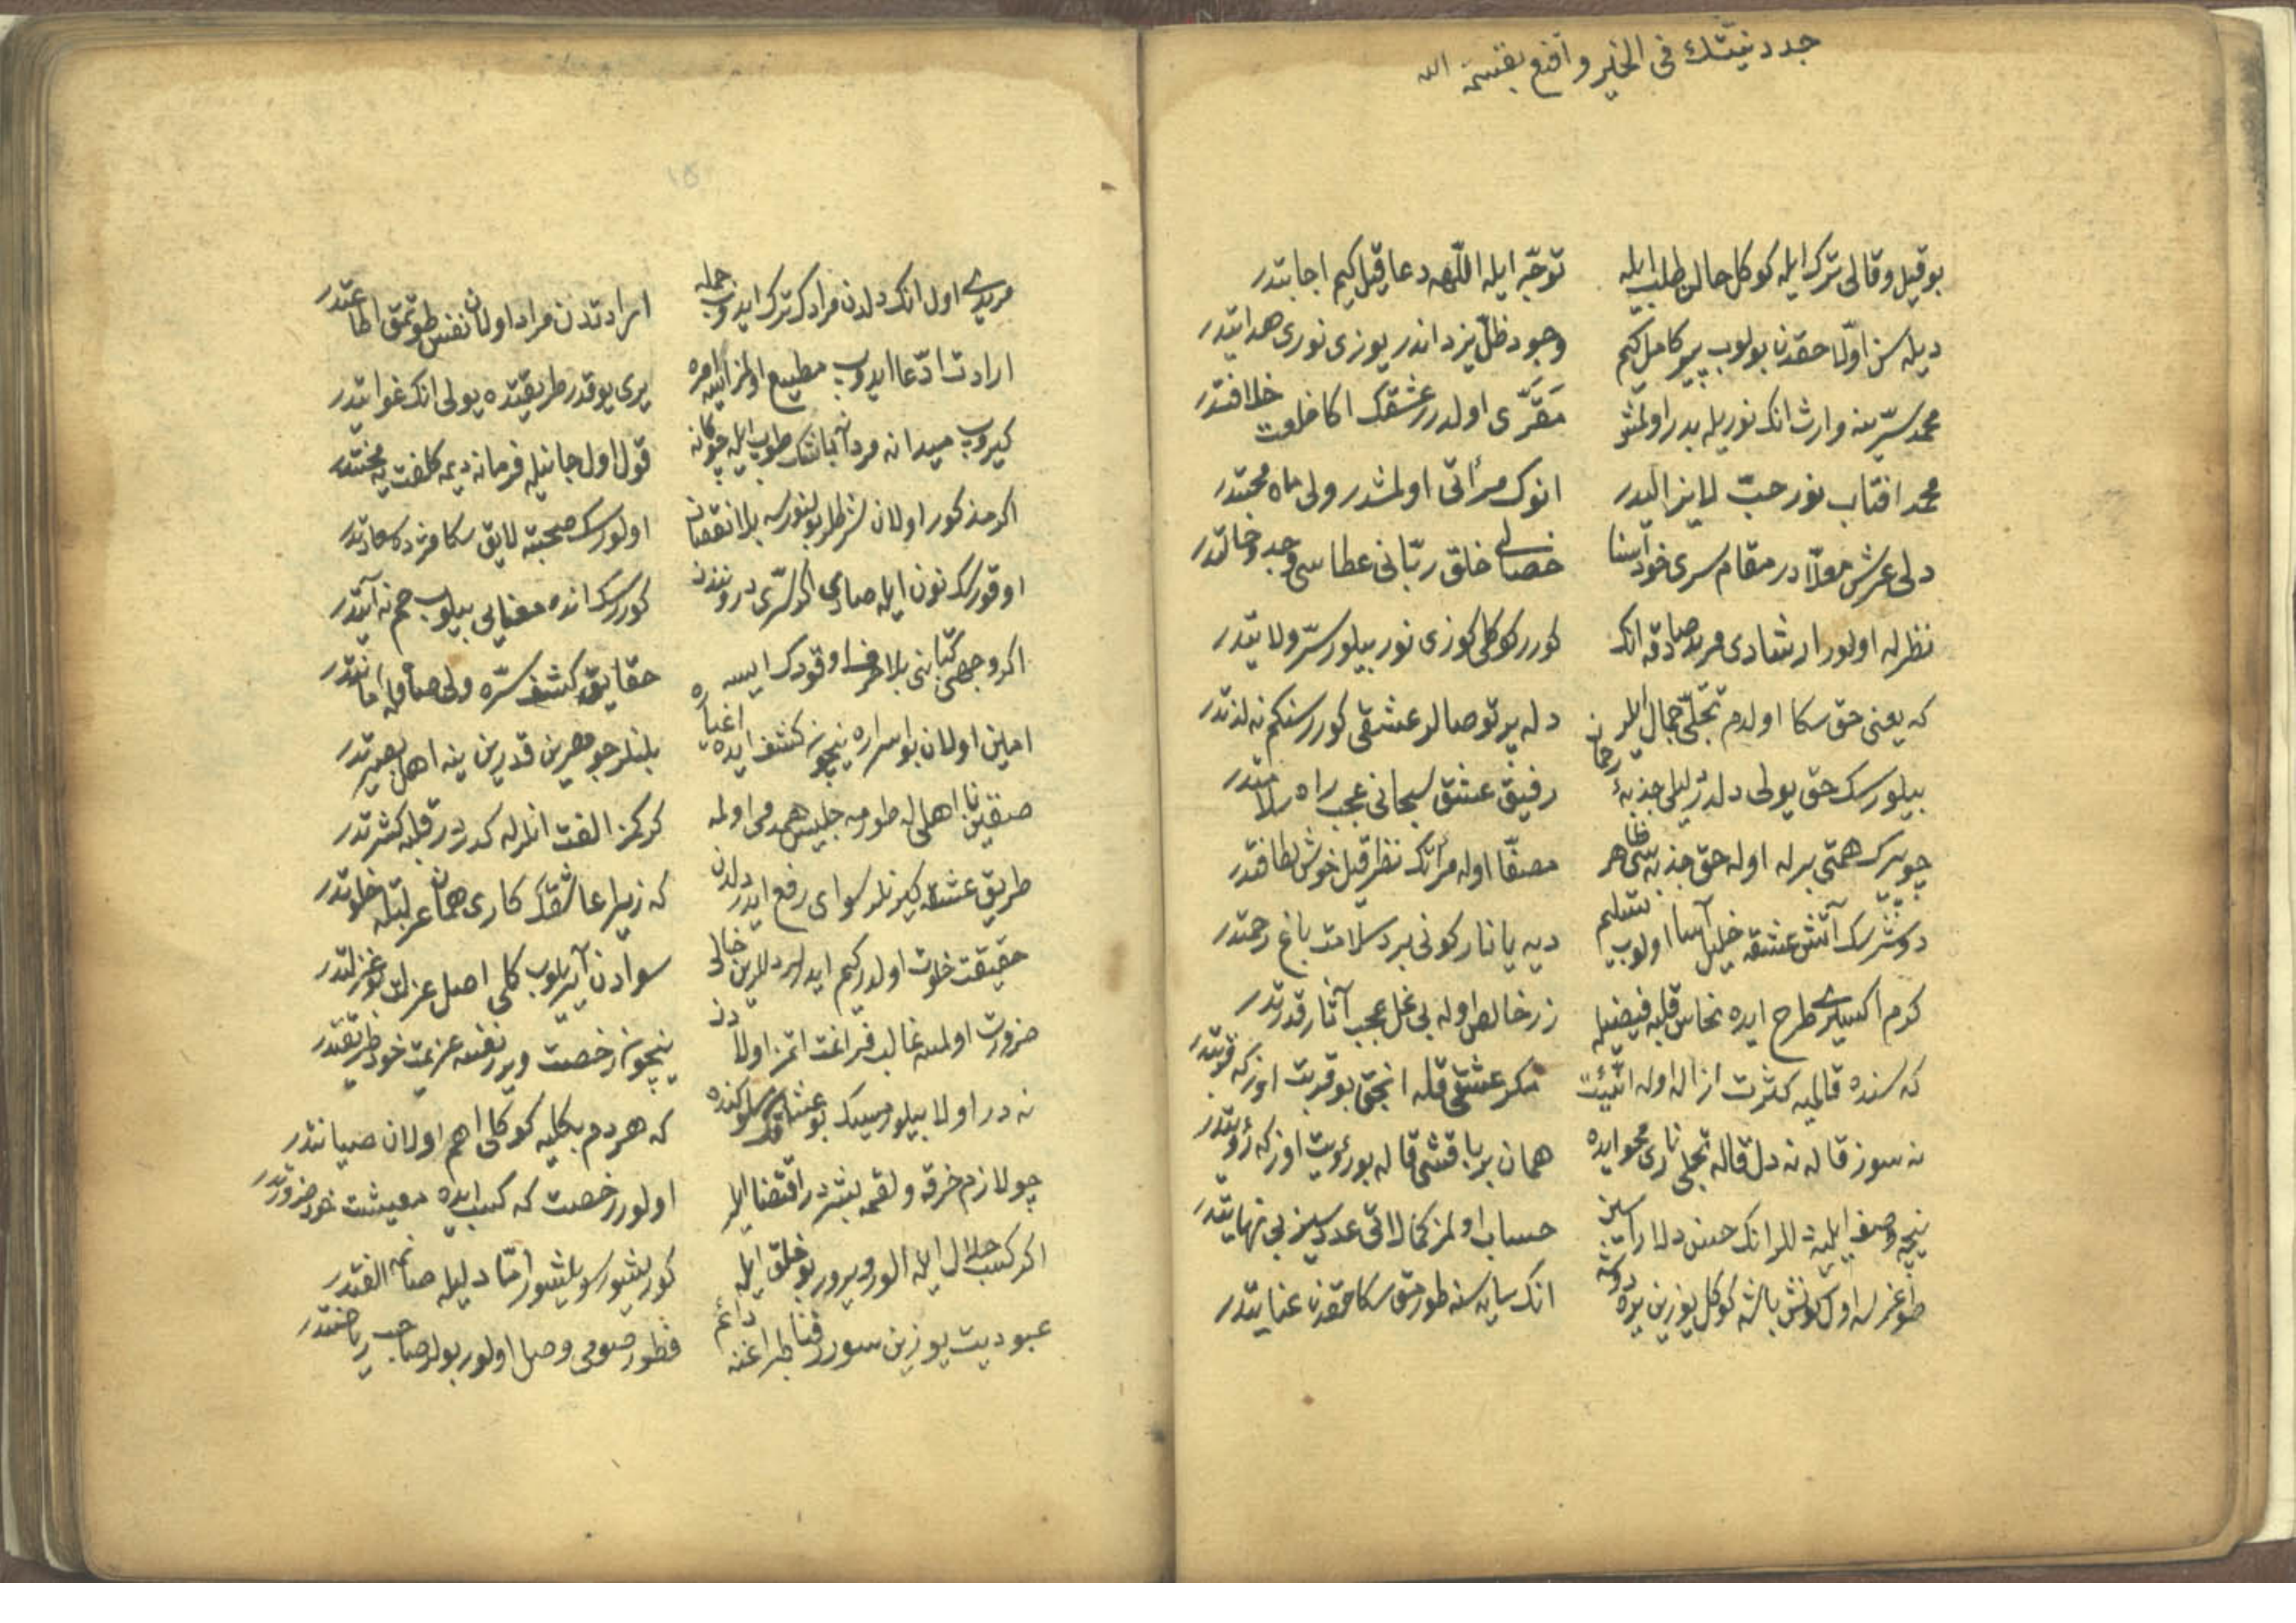 جدد نيّتك فى الخير و اقنع بقسمة الله
بو قيل و قالى ترك ايله كوكل حالن طلب ايله توجّه ايله اللّهه دعا قيل كيم اجابتدر
ديله سن اوّلا حقدن بولوب پير كامل كيم وجود ظلّ يزداندر يوزى نورى هدايتدر
محمد سرّينه وارث انك نوريله بدر اولمش مقرّى اولدر عشقك اكا خلعت خلافتدر
محمد افتاب نور حبّ لايزالدر انوك مرآتى اولمشدر ولى ماه محبتدر
دلى عرش معلّادر مقام سرى خود اسنا خصالى خلق ربّانى عطاسى وجد و حالتدر
نظرله اولور ارشادى مريد صادقه انك كورر كوكلى كوزى نور بيلور سرّ ولايتدر
كه يعنى حق سكا اولدم تجلّى جمال ايلر دله پرتو صالر عشقى كوررسنكم نه لذتدر
بيلورسك حق يولى دلدر دليلى جذبهٔ رحمان رفيق عشق سبحانى عجب راه سلامتدر
چويرك همتى بر له اوله حق جذبه سى ظاهر مصفّا اوله مرآتك نظر قيل خوش لطافتدر
دوشرسك آتش عشقه خليل آسا اولوب تسليم ديه يا نار كونى برد سلامت باغ رحمتدر
كرم اكسيرى طرح ايده نحاس قلبه فيضيله زر خالص اوله بى غل عجب آثار قدرتدر
كه سنده قالميه كثرت ازاله اوله اثنيت مكر عشقى قله انجق بو قربت اوزكه قربتدر
نه سوز قاله نه دل قاله تجلى نارى محو ايده همان بر باقشى قاله بو رؤيت اوزكه رؤيتدر
نيجه وصف ايليه دللر انك حسن دلاراسين حساب اولمز كمالاتى عددسيز بى نهايتدر
طوغرسه اول كونش باشه كوكل يوزين يره دوشه انك سايه سنه طورمق سكا حقدن عنايتدر
مريدى اول انك دلدن مرادك ترك ايدوب جمله ارادتدن مراد اولان نفس طوتمق اطاعتدر
ارادت ادّعا ايدوب مطيع اولمز ايسه امره يرى يوقدر طريقتده يولى انك غوايتدر
كيروب ميدانه مردآنه باشك طوب ايله چوكانه قول اول جانيله فرمانه ديمه كلفت نه محنتدر
اكر مذكور اولان شرطلر بولنورسه بلا نقصان اولورسك صحبته لايق سكا مژده سعادتدر
اوقورسك نون ايله صادى اكر سرّى دروننده كوررسك انده معنايى بيلوب حم نه آيتدر
اكر وجهى كتابنى بلا حرف اوقودك ايسه حقايق كشف سرّه ولى صاقله امانتدر
امين اولان بو اسراره نيچون كشف ايده اغياره بلنلر جوهرين قدرين ينه اهل بصيرتدر
صقين نا اهل له طورمه جليس همدمى اولمه كركمز الفت انلرله كدردر قلبه كثرتدر
طريق عشقه كيرنلر سواى رفع ايدر دلدن كه زيرا عاشقك كارى همان عزلتله خلوتدر
حقيقت خلوت اولدر كيم ايدرلر دللرين خالى سوادن آيريلوب كلى اصل عزلت بو عزلتدر
ضرورت اولمسه غالب فراغت اتمز اولادن نيچون رخصت ويرر نفسه عزيمت خود طريقتدر
نه در اولا بيلور ميسك بو عشاقك سلوكنده كه هر دم بكليه كوكلى اهم اولان صيانتدر
چو لازم خرقه و لقمه بشردر اقتضا ايلر اولور رخصت كه كسب ايده معيشت خود ضرورتدر
اكر كسب حلال ايله الور ويرور بو خلق ايله كوريشور سويلشور امّا دليله صانمه الفتدر
عبوديت يوزين سورر فنا طبراغنه دائم فطور صومى وصل اولور بولر صاحب رياضتدر